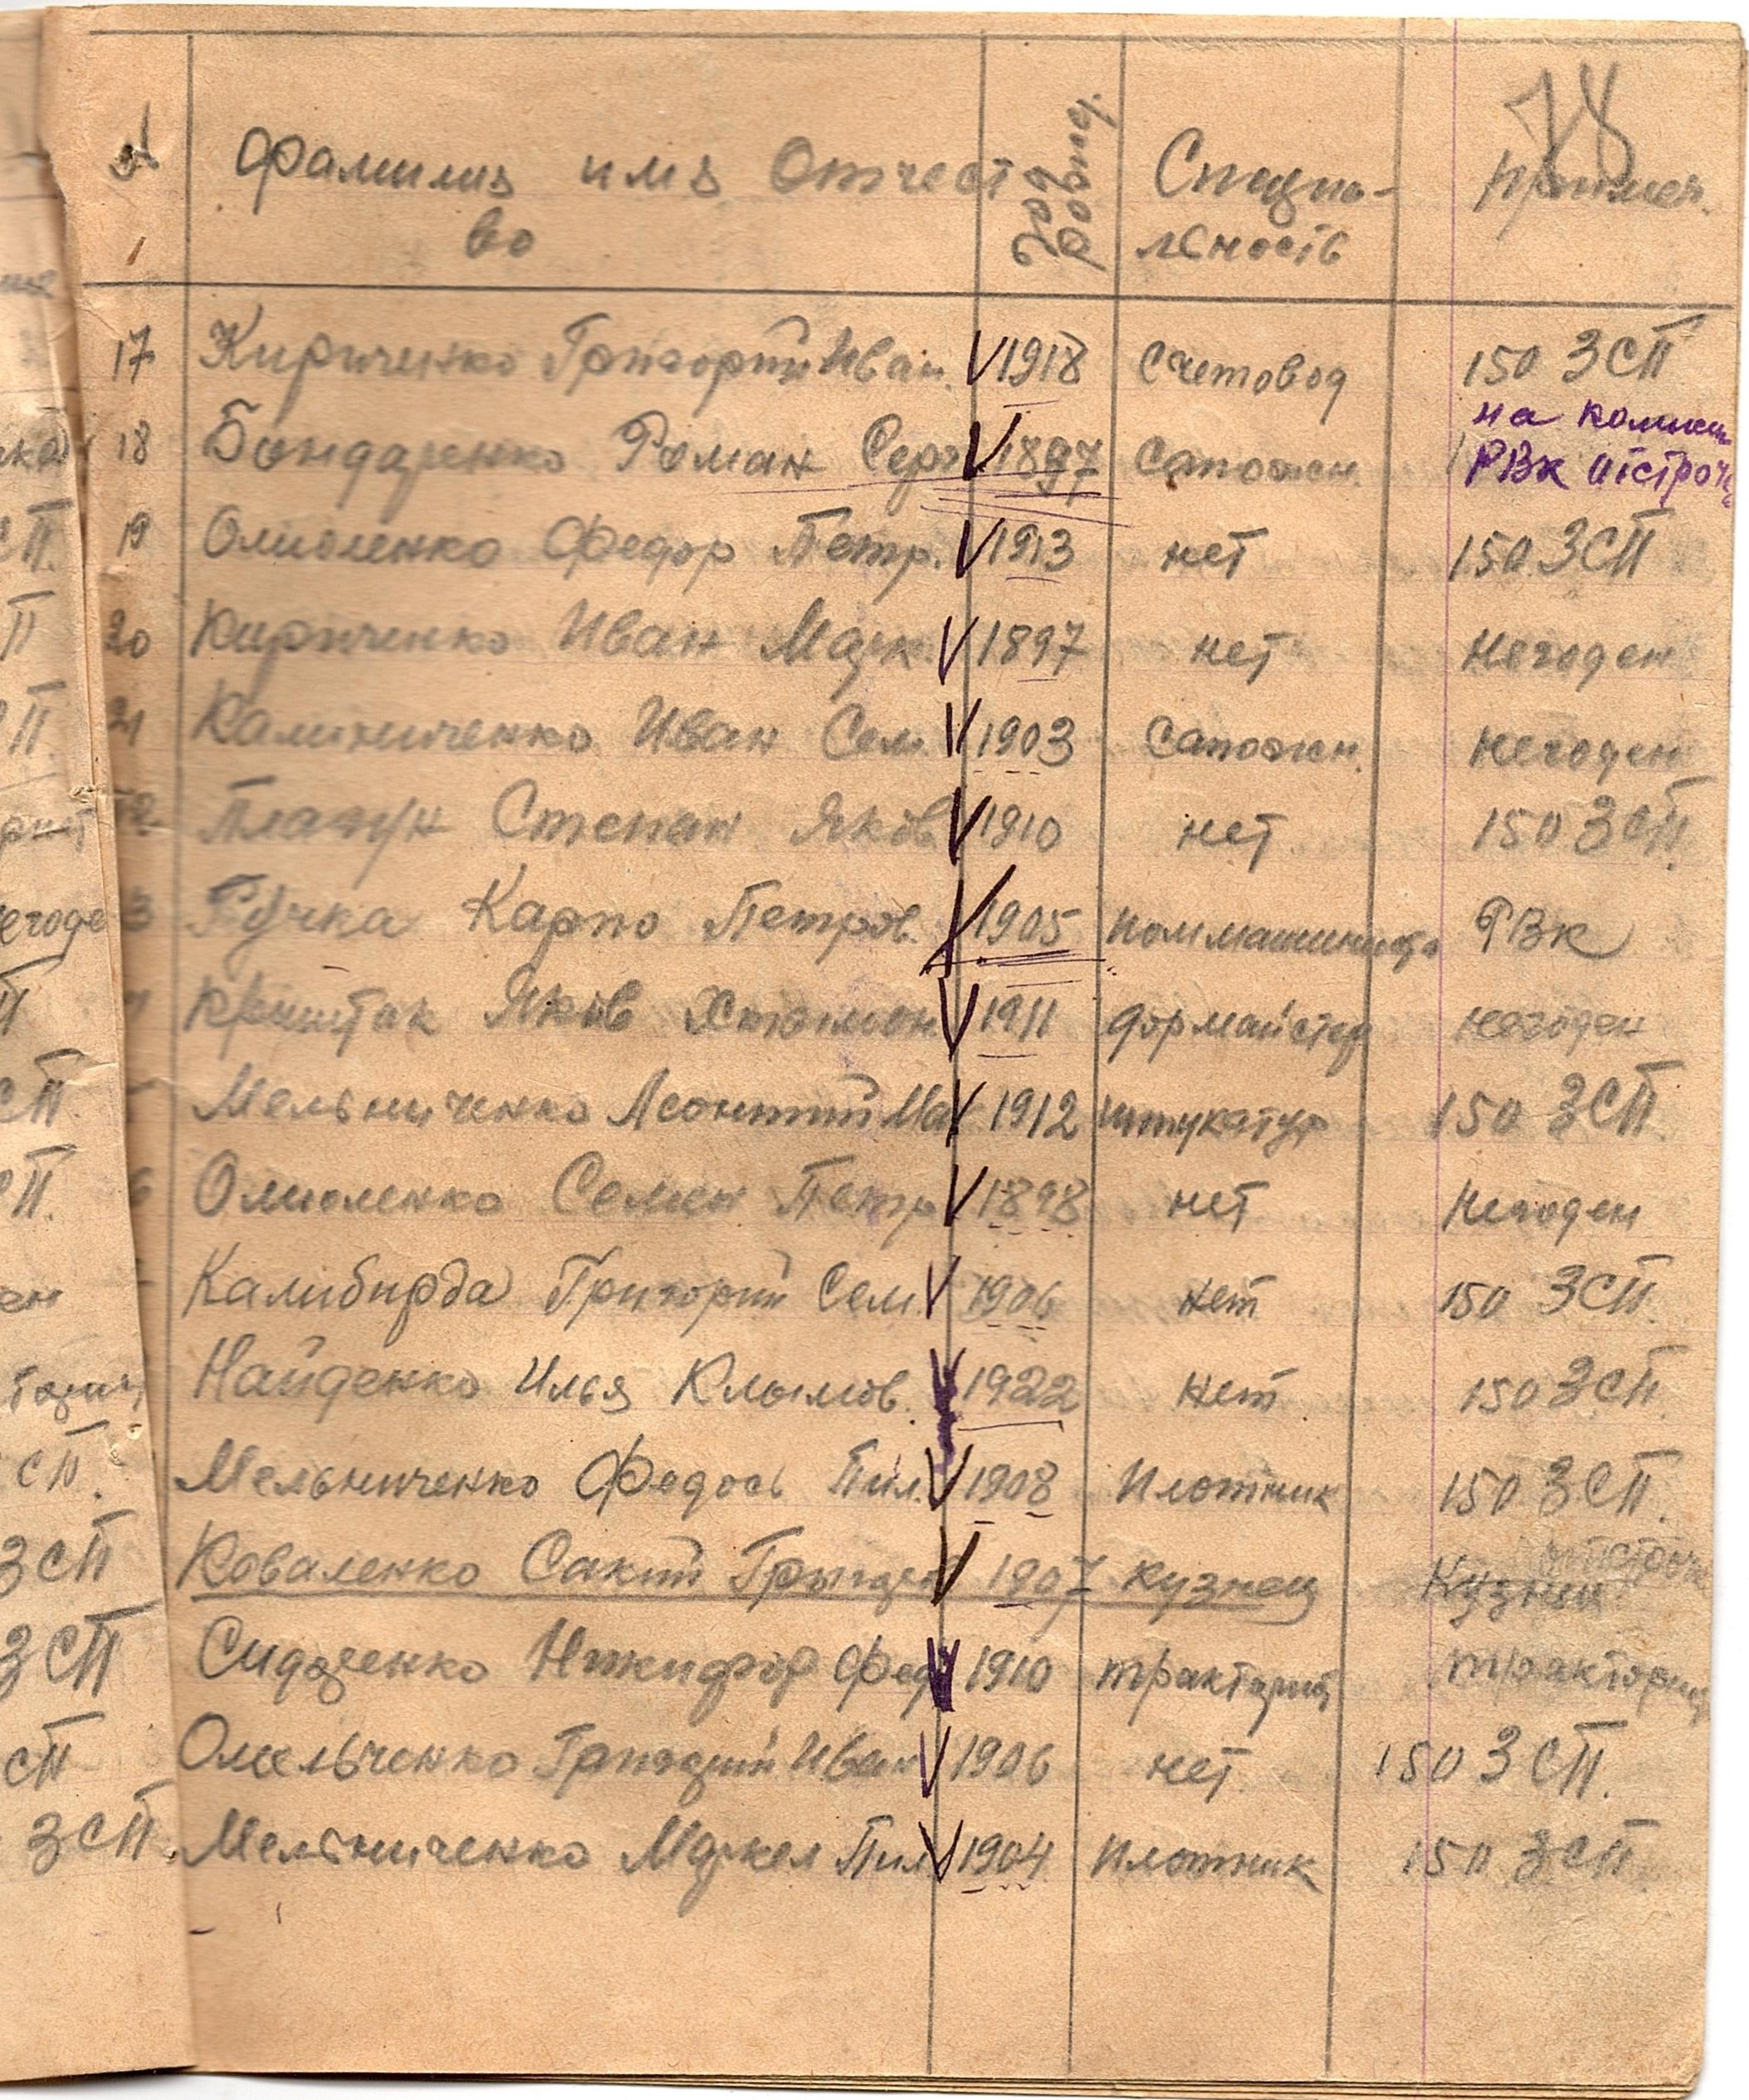 78
№ Фамилия имя Отчест Год рожд. Специа- Примеч.
во льность
17 Кириченко Григорий Иван. 1918 счетовод 150 ЗСП
на комис
18 Бондаренко Роман Серг 1897 сапожн. РВК
19 Омоленко Федор Петр. 1913 нет 150 ЗСП
20 Кириченко Иван Марк. 1897 нет негоден
21 Калиниченко Иван Сем. 1903 сапожн. негоден
Степан Яков 1910 нет 150 ЗСП.
3 Ручка Карпо Петров. 1905 РВК
Яков 1911 негоден
Мельниченко Леонтий Ма 1912 штукатур 150 ЗСП
6 Омоленко Семен Петр 1898 нет негоден
Калибирда Григорий Сем. 1906 нет 150 ЗСП.
Найденко Илья Клымов. 1922 нет 150 ЗСП.
Мельниченко Федось Пил. 1908 плотник 150 ЗСП.
Коваленко 1907 кузнец Кузнец
Сидоренко Никифор Фед 1910 тракторист
Омельченко Григорий Иван 1906 нет 150 ЗСП.
Мельниченко Маркел Пил 1904 плотник 150 ЗСП.